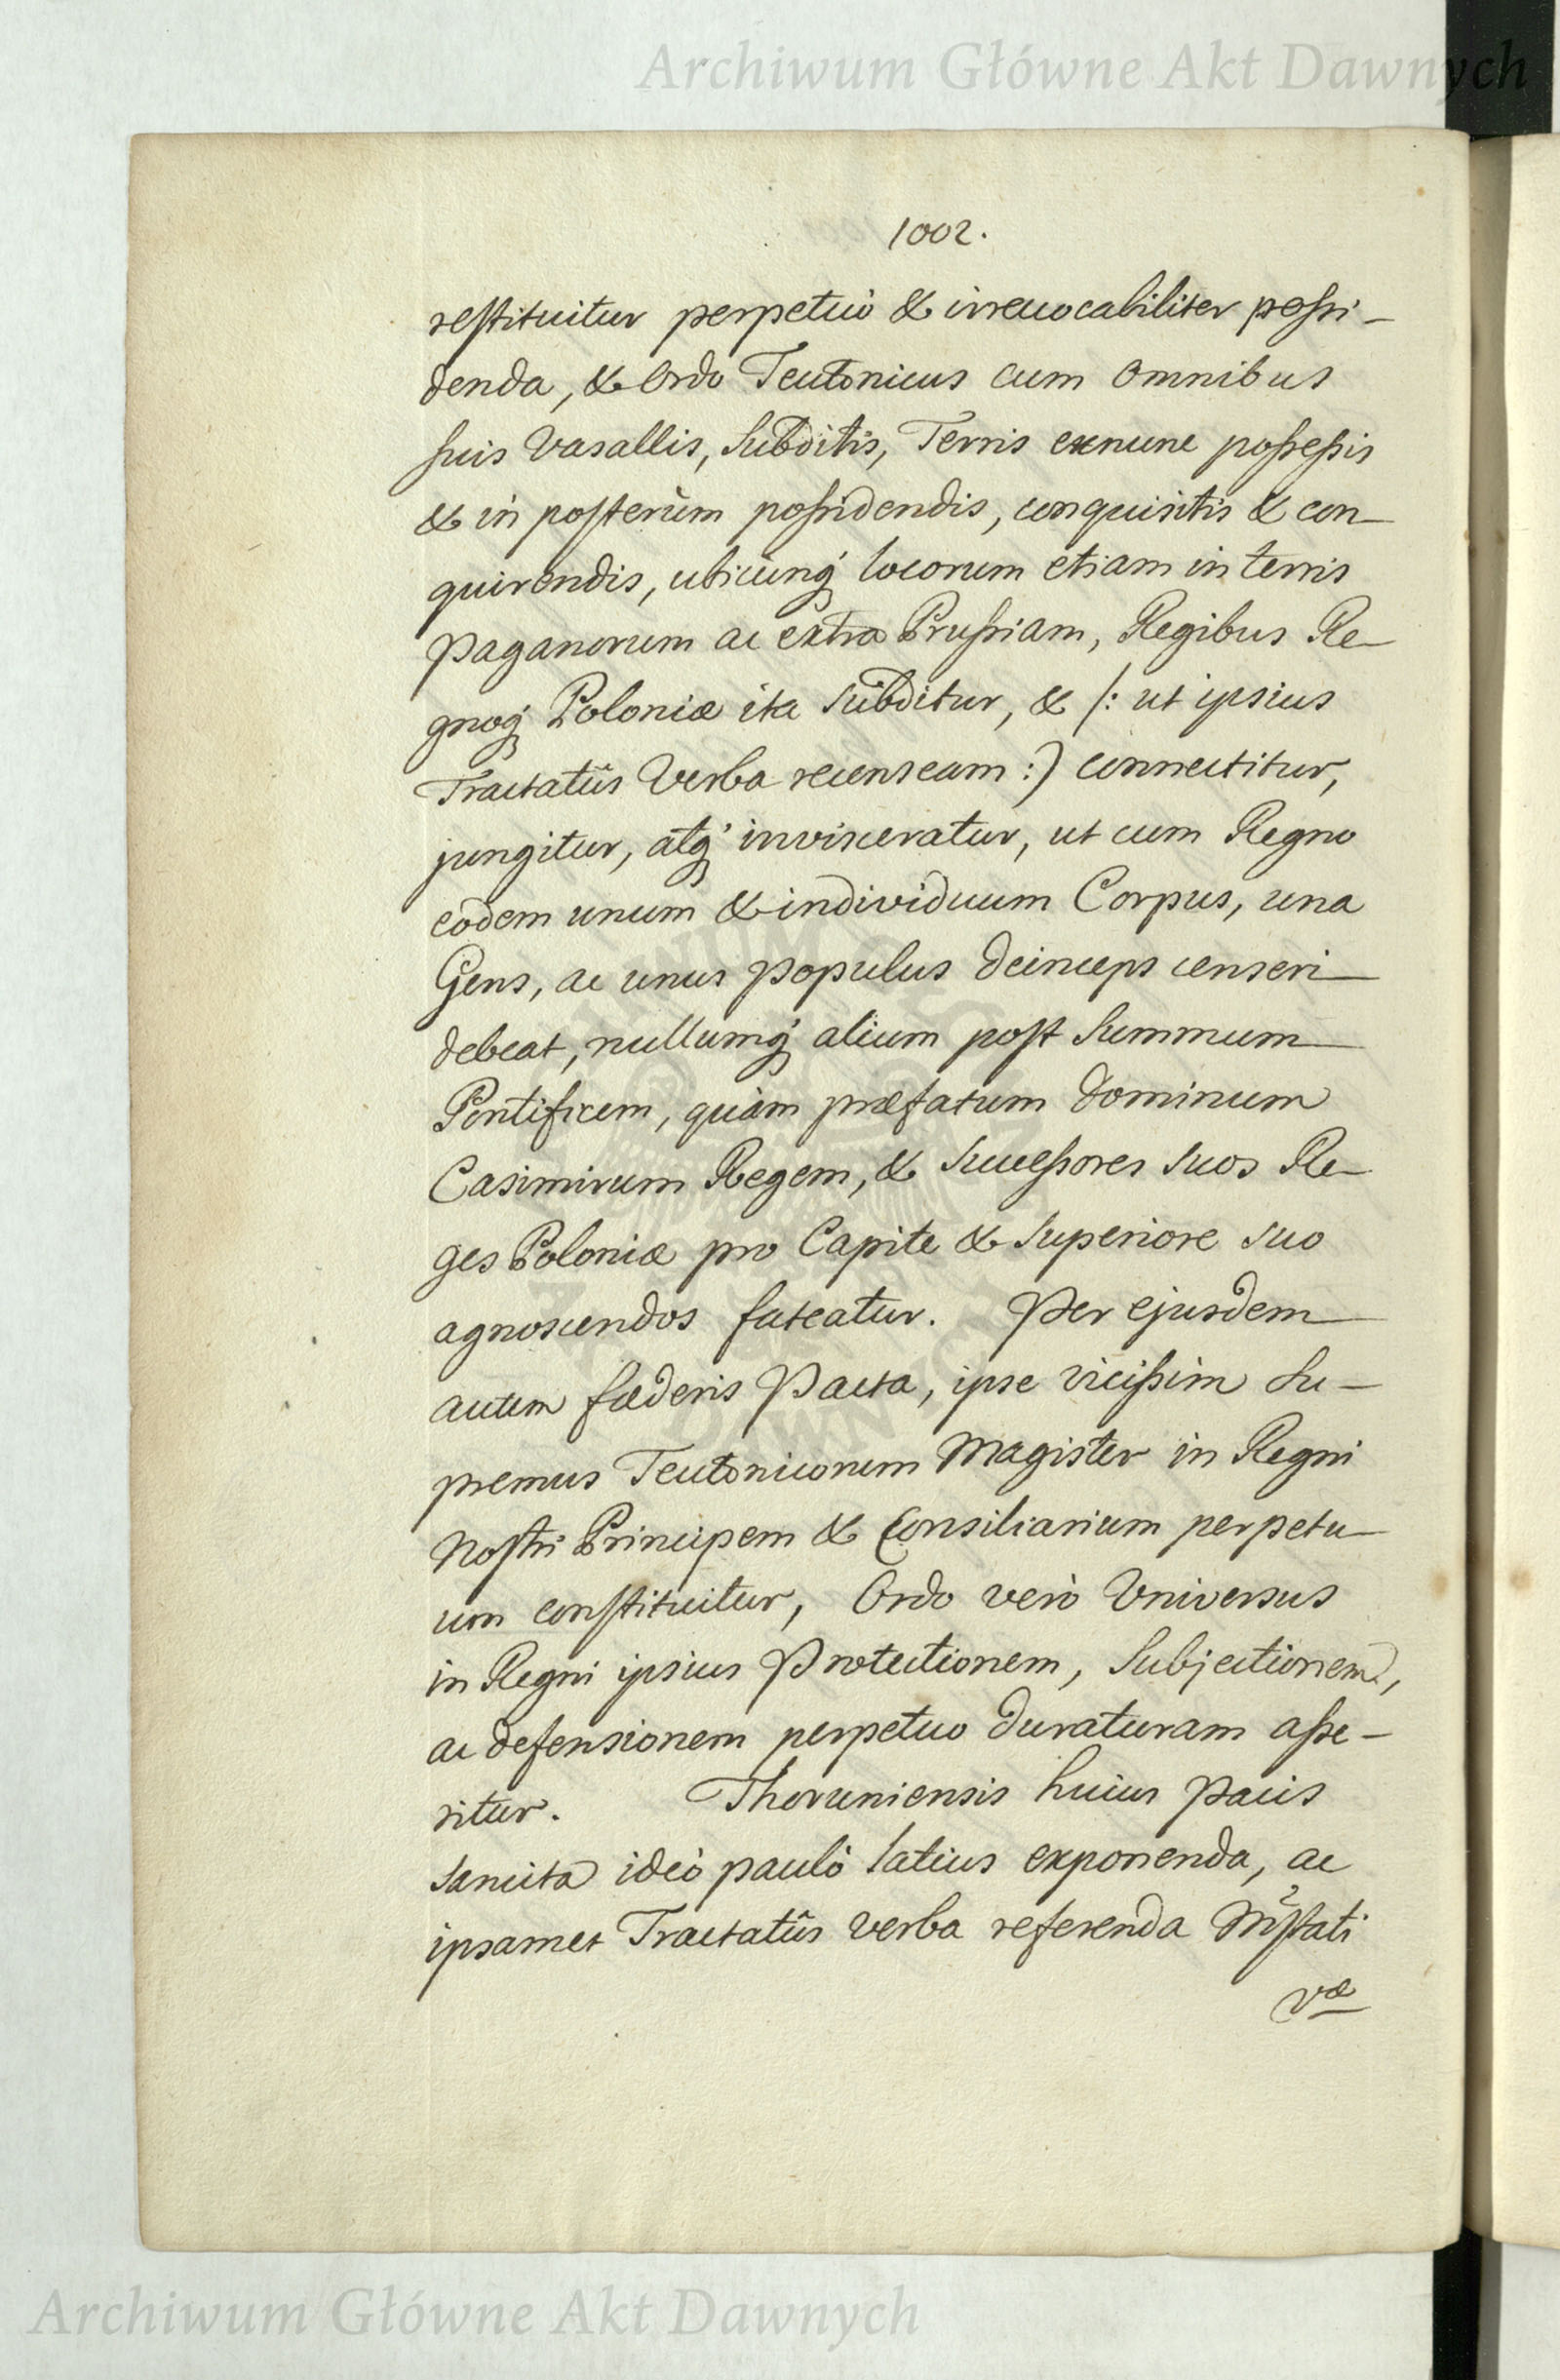 Archiwum Główne Akt Dawnych
1002.
restituitur perpetuò & irreuocabiliter possi-
denda, & Ordo Teutonicus cum omnibus
suis Vasallis, Subditis, Terris exnunc possessis
& in posterùm possidendis, conquisitis & con-
quirendis, ubicunq́ locorum etiam in terris
Paganorum ac extra Prussiam, Regibus Re-
gnoq́ Poloniæ ita subditur, & /: ut ipsius
Tractatûs Verba recenseam :) connectitur,
jungitur, atq́ inviceratur, ut cum Regno
eodem unum & individuum Corpus, una
Gens, ac unus populus deinceps censeri
debeat, nullumq́ alium post Summum
Pontificem, quàm præfatum Dominum
Casimirum Regem, & Successores suos Re-
ges Poloniæ pro Capite & Superiore suo
agnoscendos fateatur. Per ejusdem
autem fœderis Pacta, ipse vicissim Su-
premus Teutonicorum Magister in Regni
Nostri Principem & Consiliarium perpetu-
um constituitur, Ordo verò Universus
in Regni ipsius Protectionem, Subjectionem,
ac defensionem perpetuo duraturam asse-
ritur. Thoruniensis huius Pacis
sancita ideò paulò latius exponenda, ac
ipsamet Tractatûs verba referenda Mstati
væ
Archiwum Główne Akt Dawnych